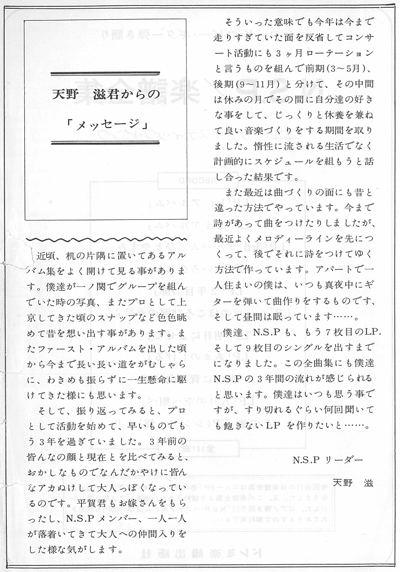 天野　滋君からの
「メッセージ」
近頃、机の片隅に置いてあるアル
バム集をよく開けて見る事がありま
す。僕達が一ノ関でグループを組ん
でいた時の写真、またプロとして上
京してきた頃のスナップなど色色眺
めて昔を想い出す事があります。ま
たファースト・アルバムを出した頃
から今まで長い長い道をがむしゃら
に、わきめも振らずに一生懸命に駆
けてきた様にも思います。
そして、振り返ってみると、プロ
として活動を始めて、早いものでも
う３年を過ぎていました。３年前の
皆んなの顔と現在とを比べてみると、
おかしなものでなんだかやけに皆ん
なアカぬけして大人っぽくなってい
るのです。平賀君もお嫁さんをもら
ったし、N.S.P メンバー、一人一人
が落着いてきて大人への仲間入りを
した様な気がします。
そういった意味でも今年は今まで
走りすぎていた面を反省してコンサ
ート活動にも３ヶ月ローテーション
と言うものを組んで前期(３～５月)、
後期(９～11月)と分けて、その中間
は休みの月でその間に自分達の好き
な事をして、じっくりと休養を兼ね
て良い音楽づくりをする期間を取り
ました。惰性に流される生活でなく
計画的にスケジュールを組もうと話
し合った結果です。
また最近は曲づくりの面にも昔と
違った方法でやっています。今まで
詩があって曲をつけたりしましたが、
最近よくメロディーラインを先につ
くって、後でそれに詩をつけてゆく
方法で作っています。アパートで一
人住まいの僕は、いつも真夜中にギ
ターを弾いて曲作りをするものです、
そして昼間は眠っています……。
僕達、N.S.Pも、もう７枚目のLP.
そして９枚目のシングルを出すまで
になりました。この全曲集にも僕達
N.S.Pの３年間の流れが感じられる
と思います。僕達はいつも思う事で
すが、すり切れるぐらい何回聞いて
も飽きない LP を作りたいと……。
N.S.P リーダー
天野　滋